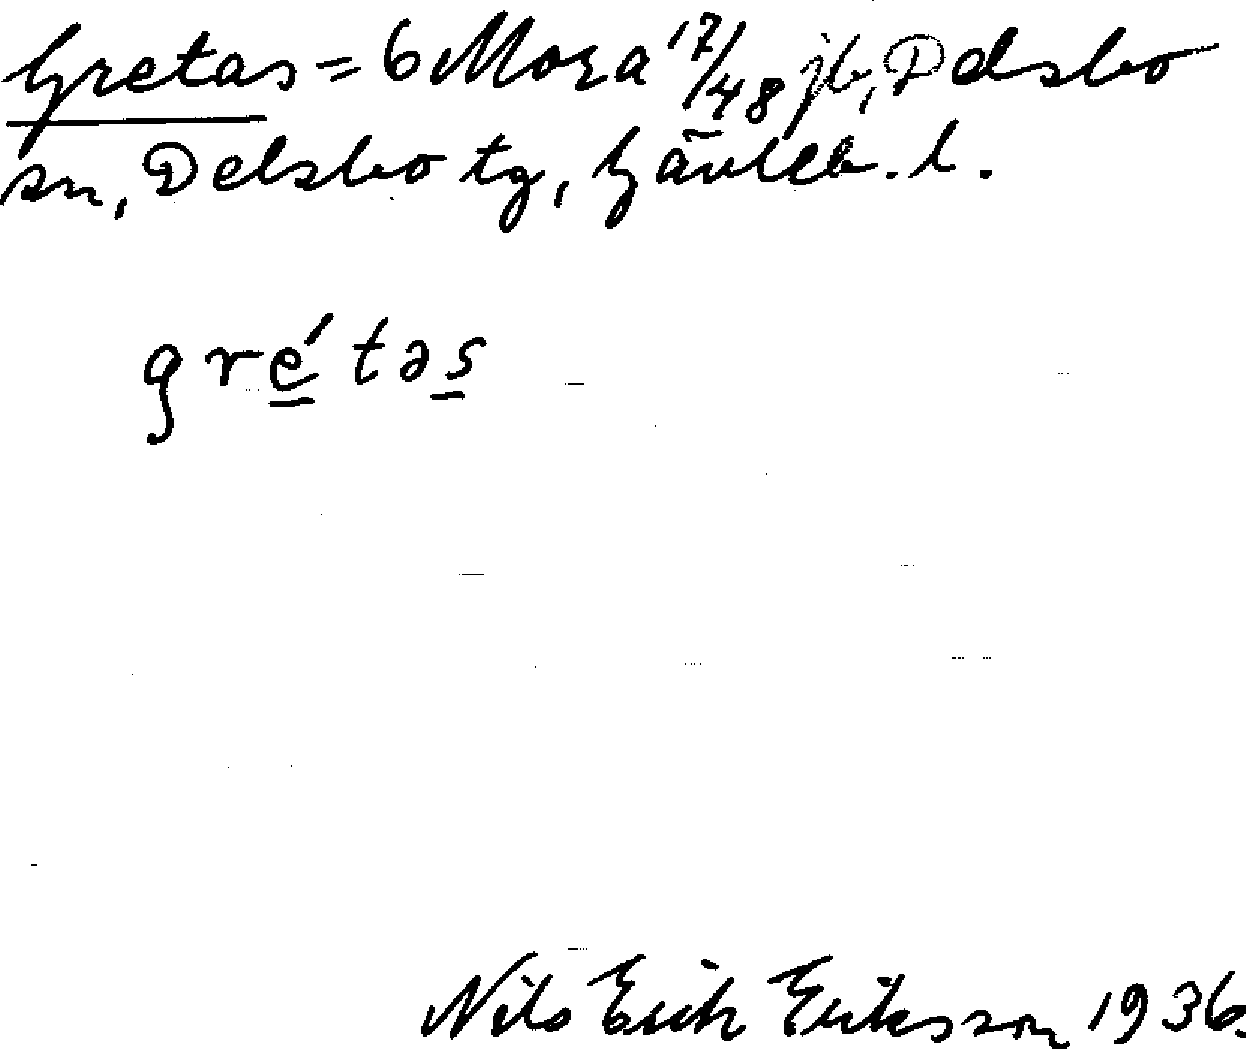 Gretas = 6 Mora 17/48 jb, Delsbo
sn, Delsbo tg, Gävleb. l.
gré̲təs̲
Nils Erik Eriksson 1936.